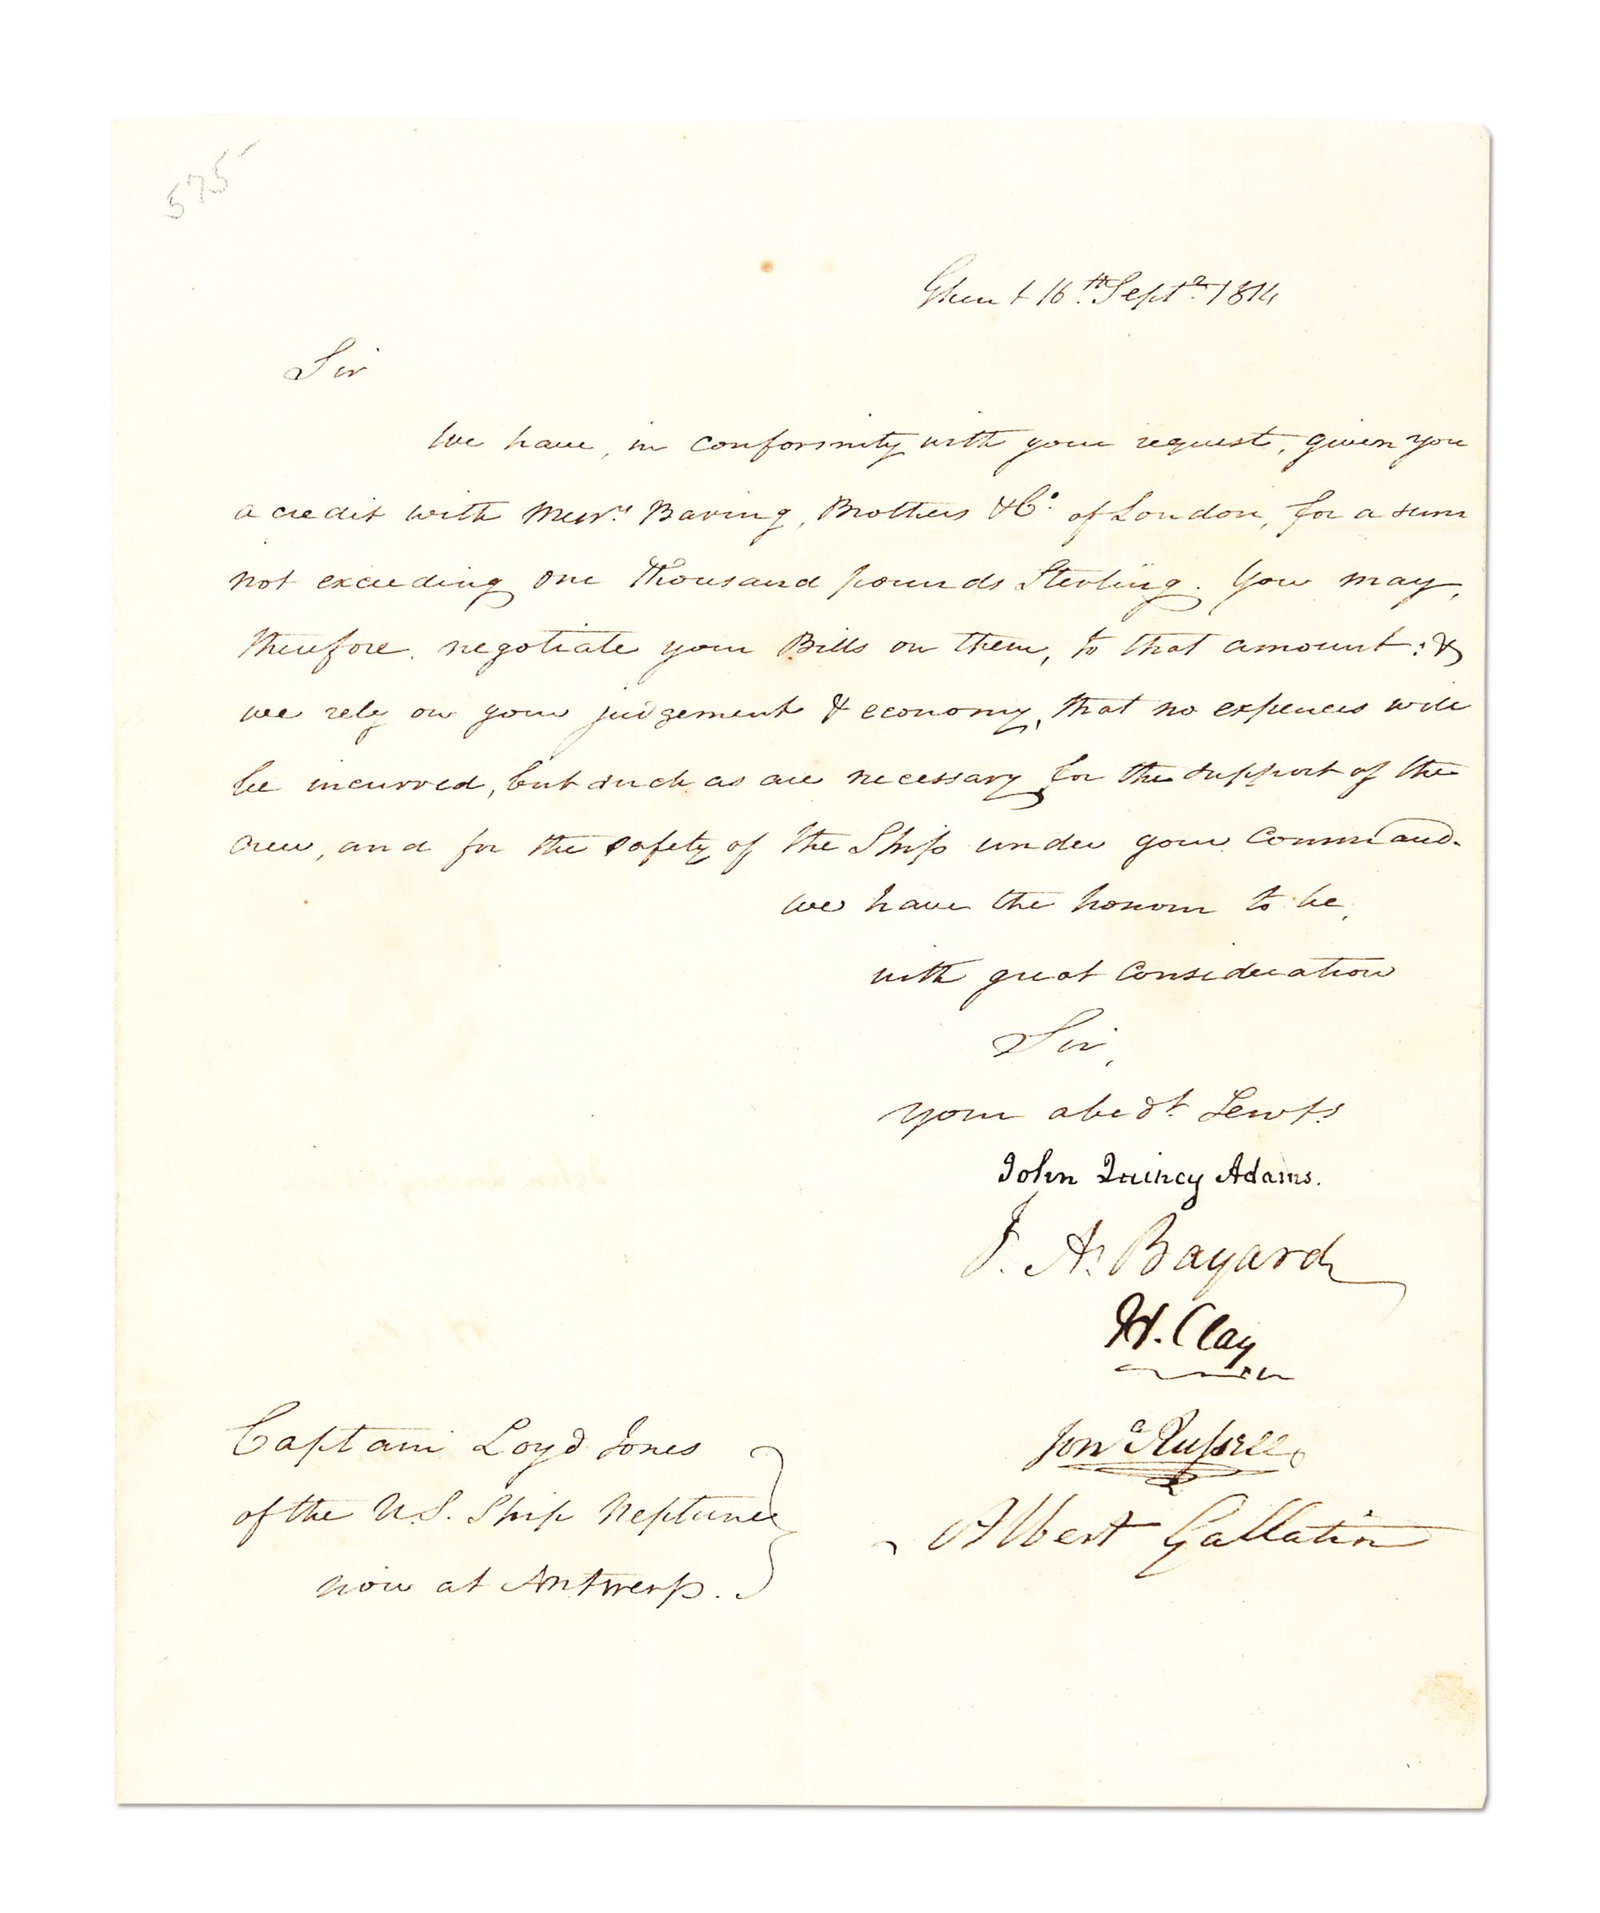 575-
Ghent 16.th Septr. 1814
Sir
We have, in conformity with your request, given you
a credit with Messrs. Baring, Brothers & Co. of London, for a sum
not exceeding One Thousand pounds Sterling. You may,
therefore, negotiate your Bills on them, to that amount: &
we rely on your judgement & economy, that no expences will
be incurred, but such as are necessary for the support of the
Crew, and for the safety of the Ship under your Command.
We have the honour to be,
with great Consideration
Sir,
your obedt. Servts.
John Quincy Adams.
J. A. Bayard
H. Clay
Jona Russell
Albert Gallatin
Captain Loyd Jones
of the U.S. Ship Neptune
now at Antwerp.